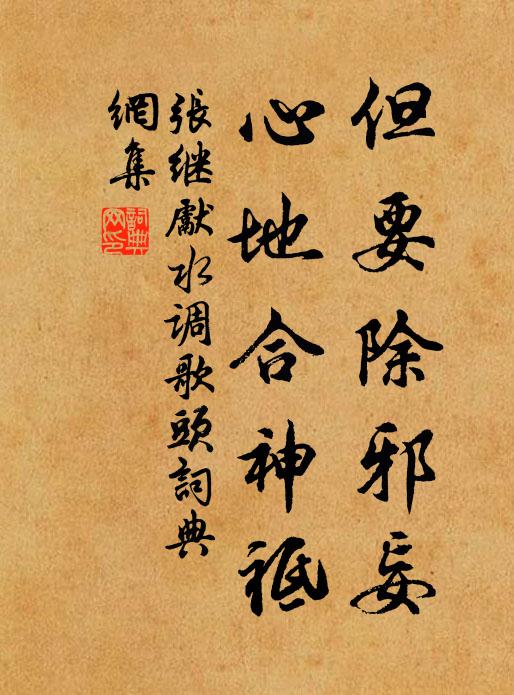 但要除邪妄
心地合神祇
張继獻水调歌頭詞典
網集
詞典
网印